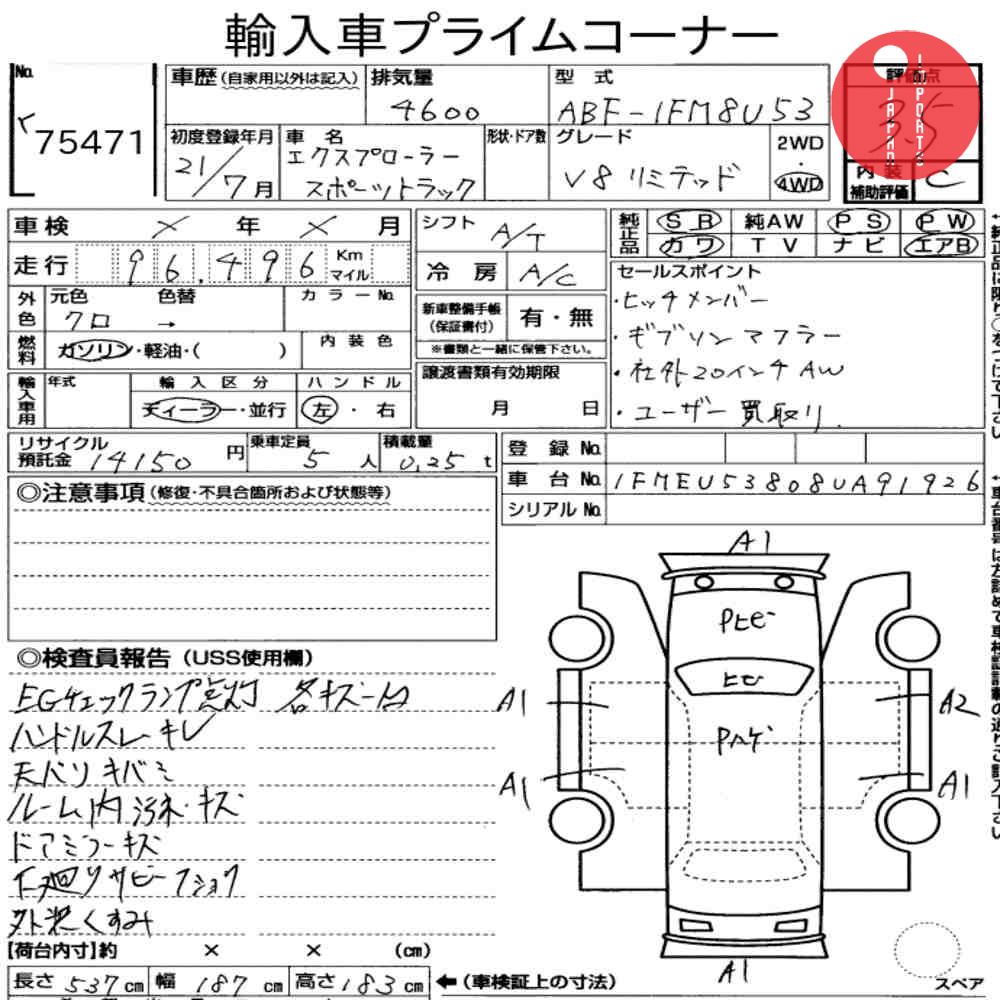 輸入車プライムコーナー
No. 75471
車歴(自家用以外は記入)
排気量 4600
型式 ABF-1FM8U53
評価点 3.5
JAPAN IMPORTS
初度登録年月 21/7月
車名 エクスプローラー
スポーツトラック
形状・ドア数
グレード V8 リミテッド
2WD
・
4WD
内装
補助評価 C
車検 × 年 × 月
走行 96,496 Km
マイル
シフト A/T
冷房 A/C
純正品 SR 純AW PS PW
カワ TV ナビ エアB
外色 元色 クロ 色替 → カラーNo.
燃料 ガソリン・軽油・( ) 内装色
新車整備手帳
(保証書付) 有・無
※書類と一緒に保管下さい。
セールスポイント
・ヒッチメンバー
・ギブソンマフラー
・社外20インチAW
・ユーザー買取り
輸入車用 年式 輸入区分 ハンドル
ディーラー・並行 左・右
譲渡書類有効期限
月 日
リサイクル
預託金 14150円
乗車定員 5人
積載量 0.25t
登録No.
車台No. 1FMEU53808UA91926
シリアルNo.
◎注意事項(修復・不具合箇所および状態等)
◎検査員報告(USS使用欄)
EGチェックランプ点灯 各キズ凹
ハンドルスレ・キレ
天バリキバミ
ルーム内汚れ・キズ
ドアミラーキズ
下廻りサビ
外装くすみ
A1
Pトビ
トビ
Pハゲ
A1
A2
A1
A1
A1
スペア
【荷台内寸】約 × × (cm)
長さ 537cm 幅 187cm 高さ 183cm
←(車検証上の寸法)